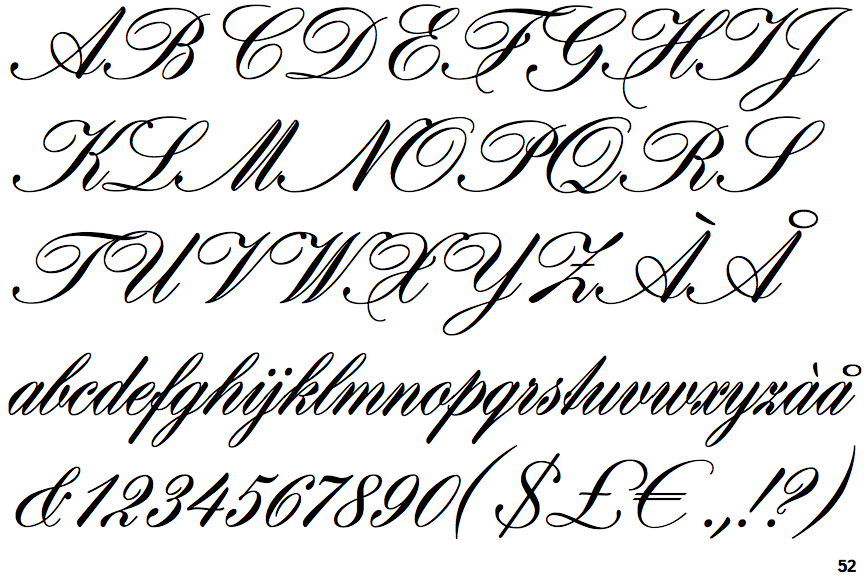 ABCDEFGHIJ
KLMNOPQRS
TUVWXYZÀÅ
abcdefghijklmnopqrstuvwxyzàå
&1234567890($£€.,!?)
52